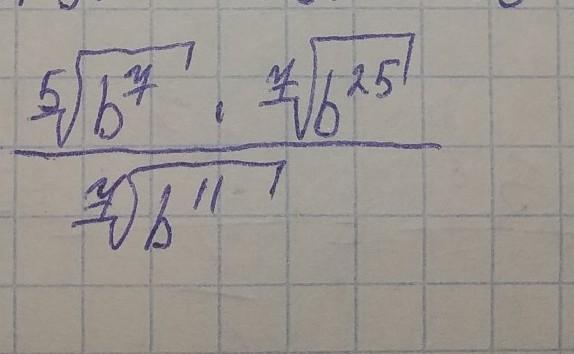 ⁵√b⁷ · ⁷√b²⁵
⁷√b¹¹